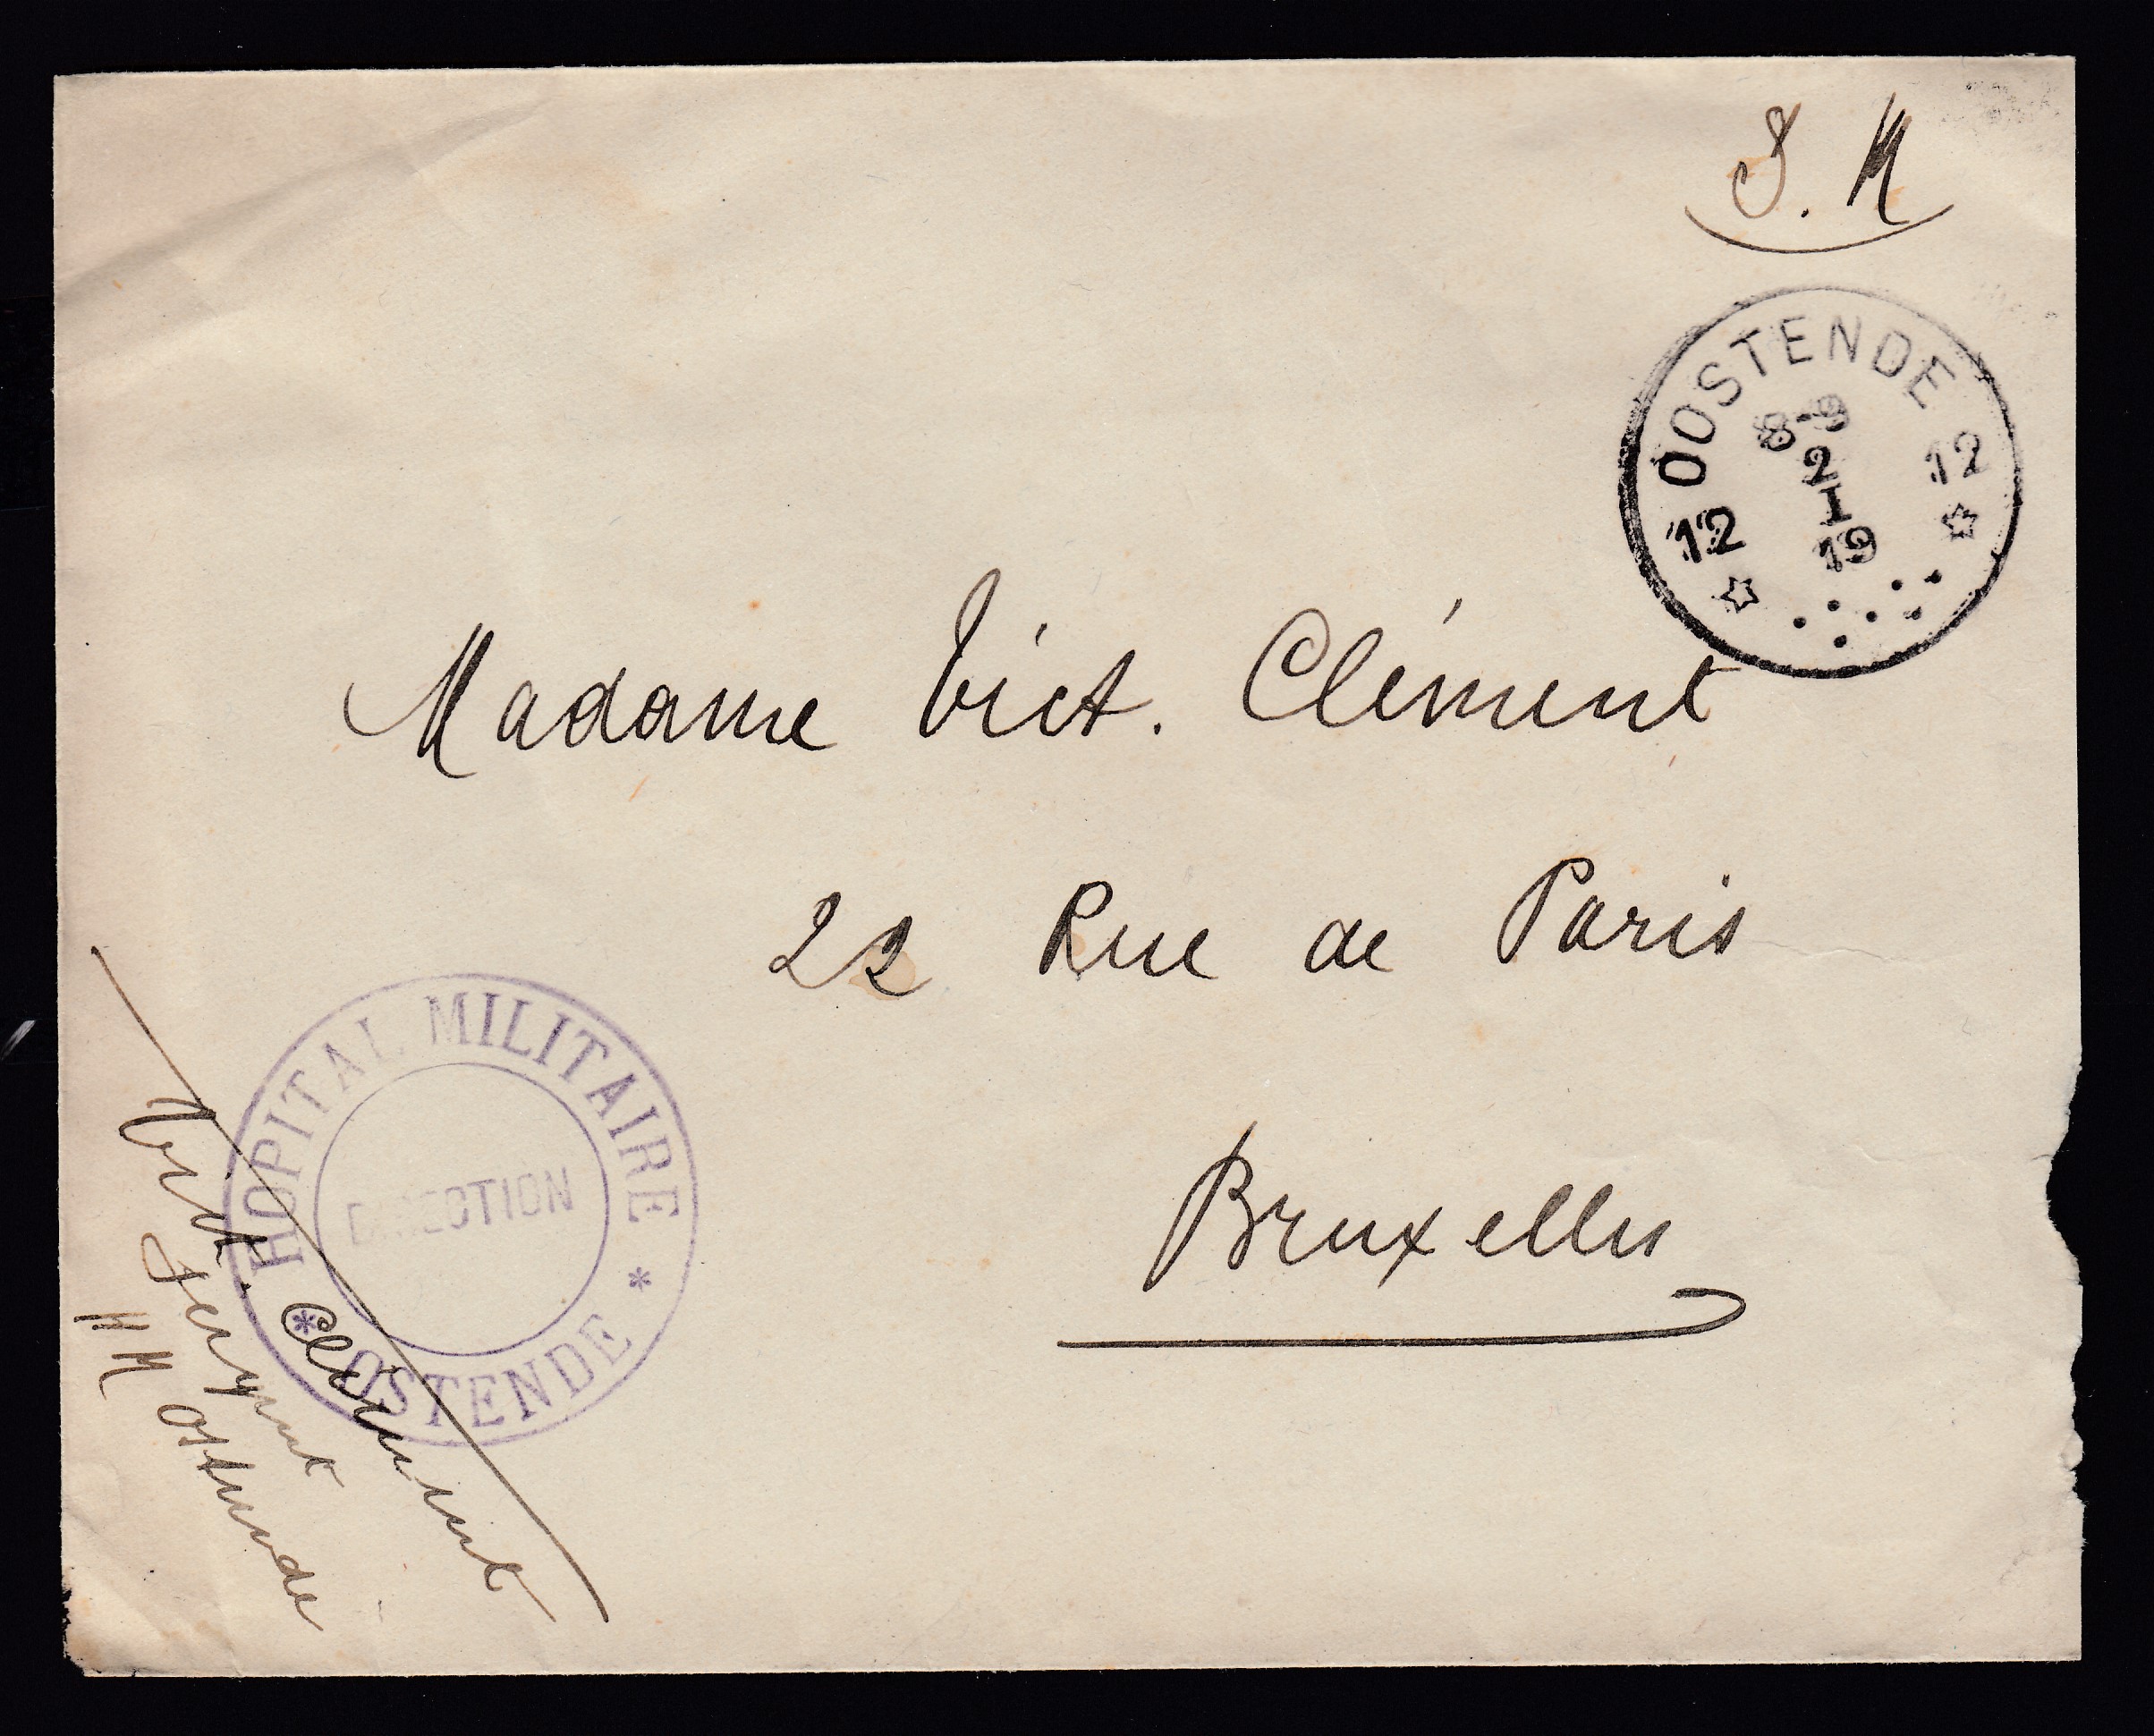 S. M
OOSTENDE
12 12
8-9
2
I
19
Madame Vict. Clément
22 Rue de Paris
Bruxelles
HOPITAL MILITAIRE
DIRECTION
* OSTENDE *
Vict. Clément
Sergent
H M Ostende